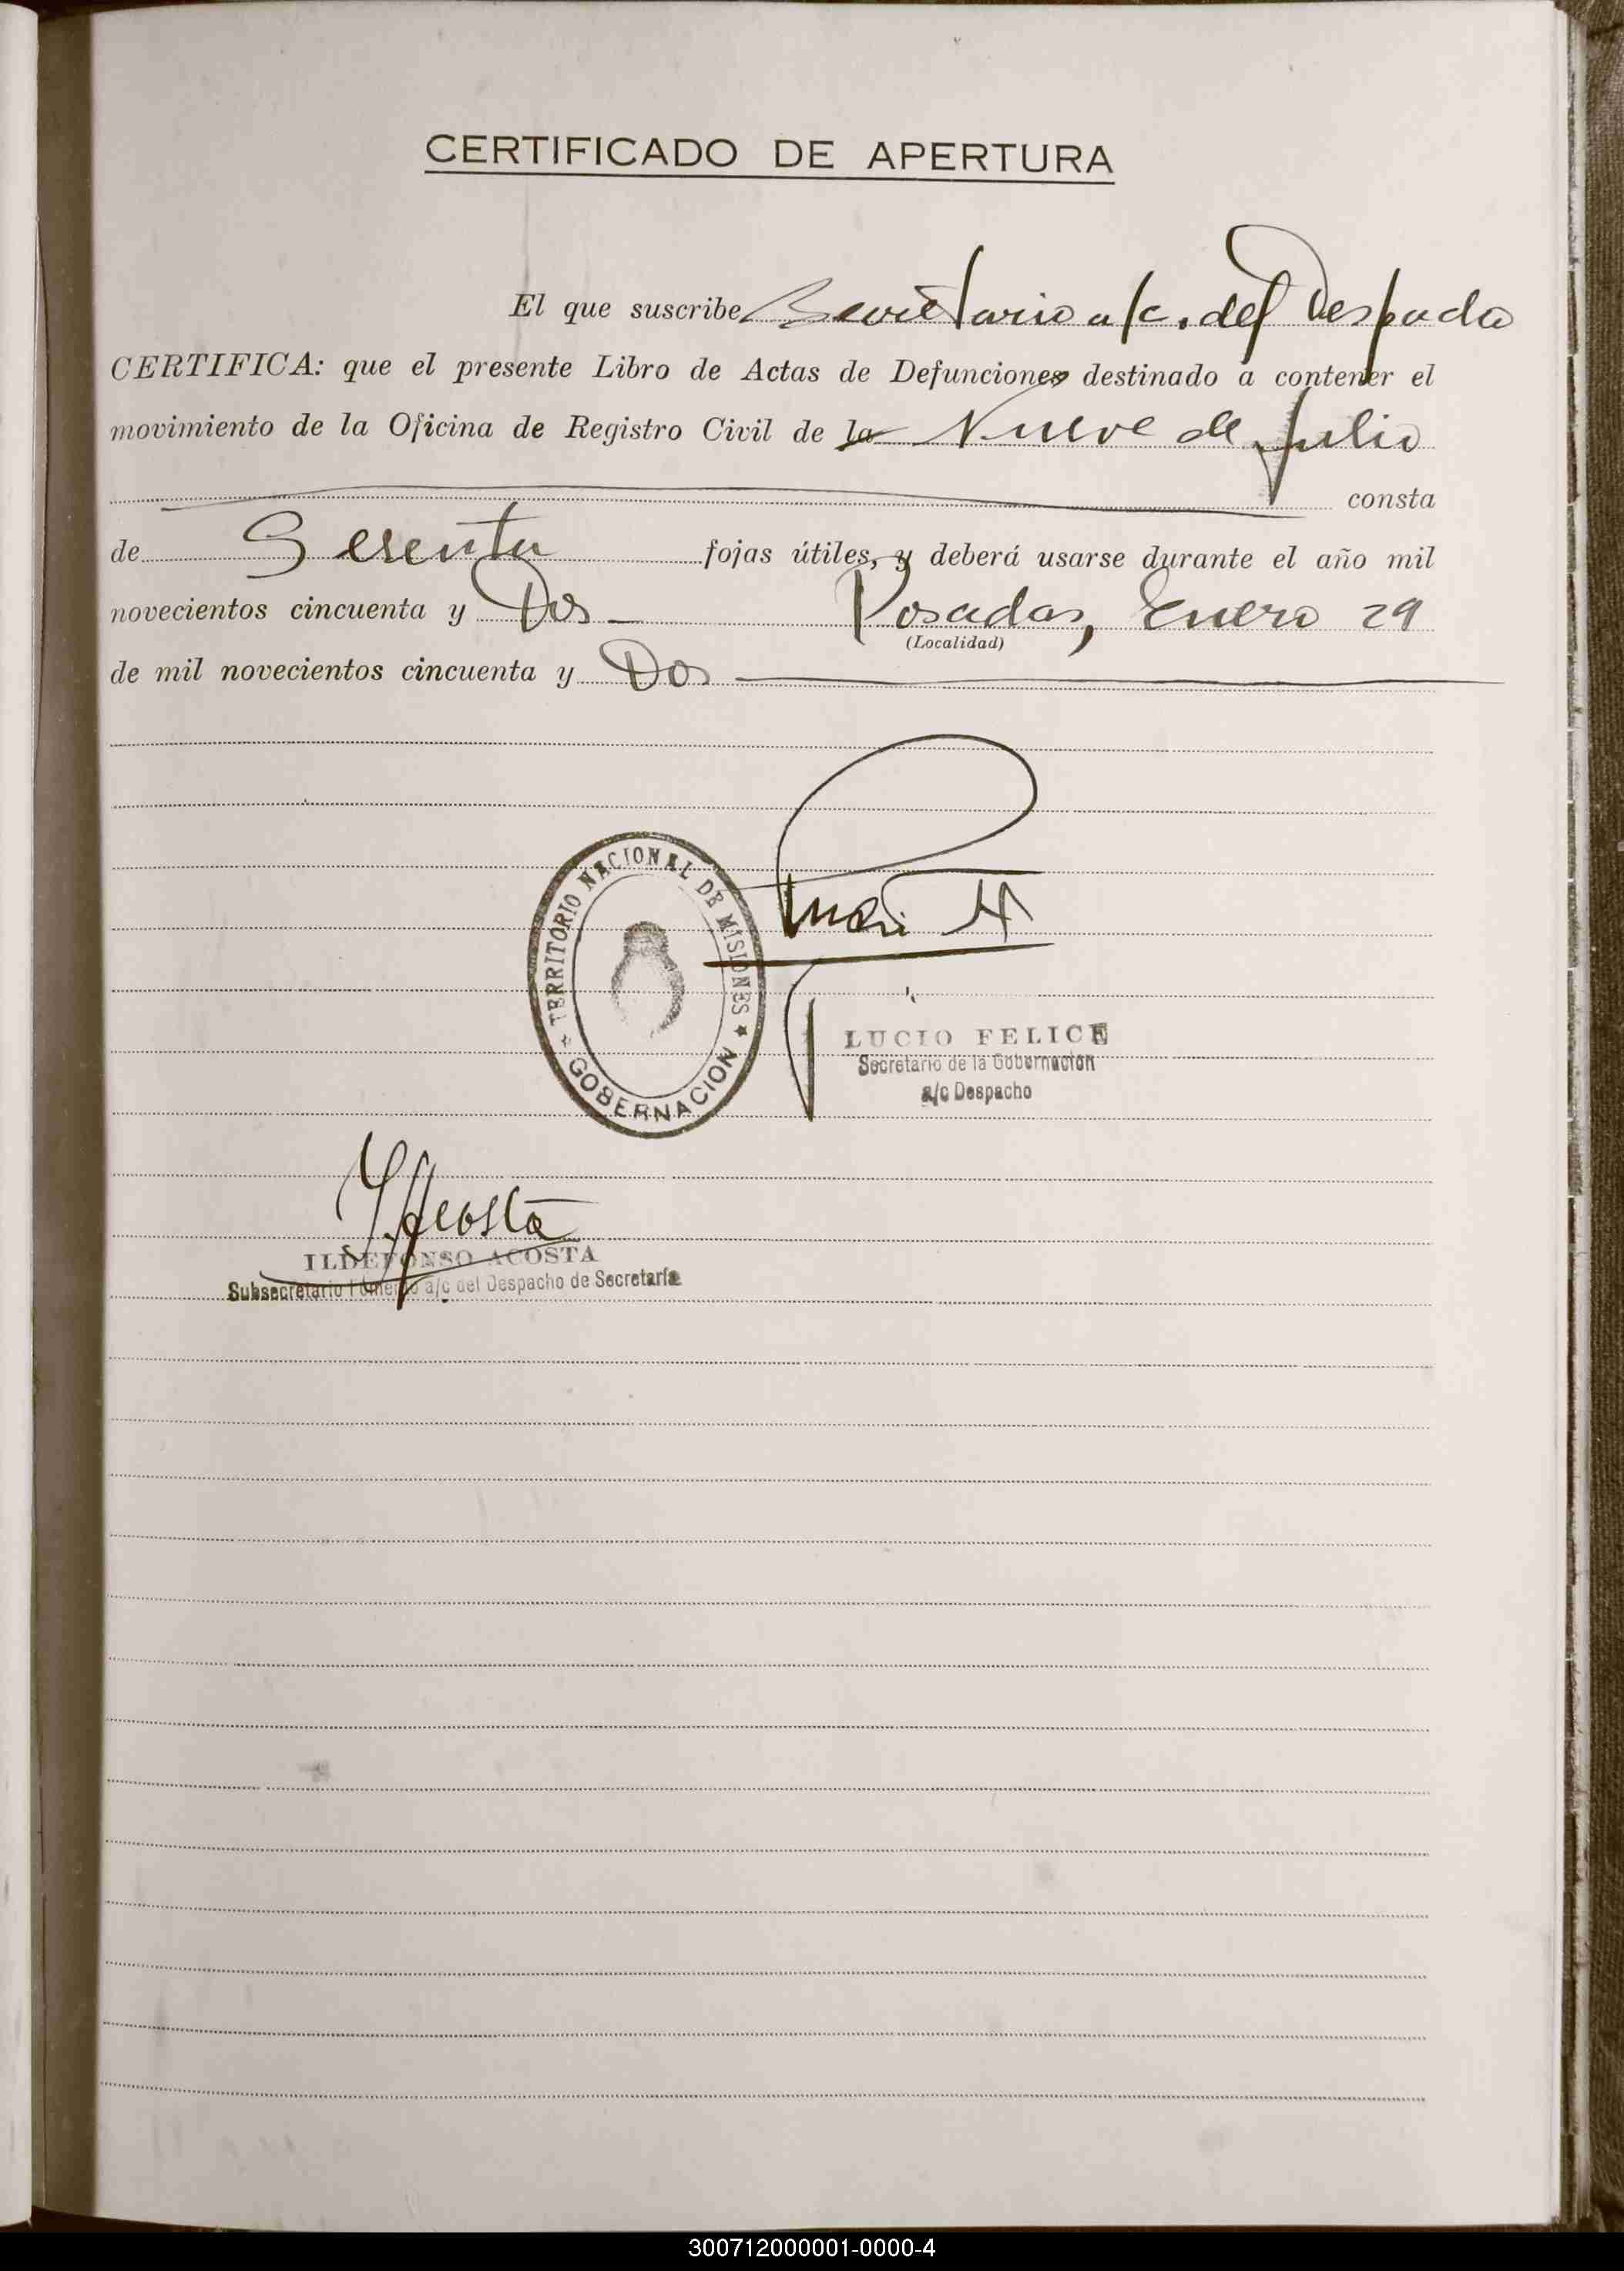 CERTIFICADO DE APERTURA
El que suscribe Secretario a/c. del Despacho
CERTIFICA: que el presente Libro de Actas de Defunciones destinado a contener el
movimiento de la Oficina de Registro Civil de la Nueve de Julio
consta
de Sesenta fojas útiles, y deberá usarse durante el año mil
novecientos cincuenta y Dos Posadas, Enero 29
(Localidad)
de mil novecientos cincuenta y Dos
TERRITORIO NACIONAL DE MISIONES
GOBERNACION
LUCIO FELICE
Secretario de la Gobernación
a/c Despacho
Acosta
ILDEFONSO ACOSTA
Subsecretario Fomento a/c del Despacho de Secretaría
300712000001-0000-4